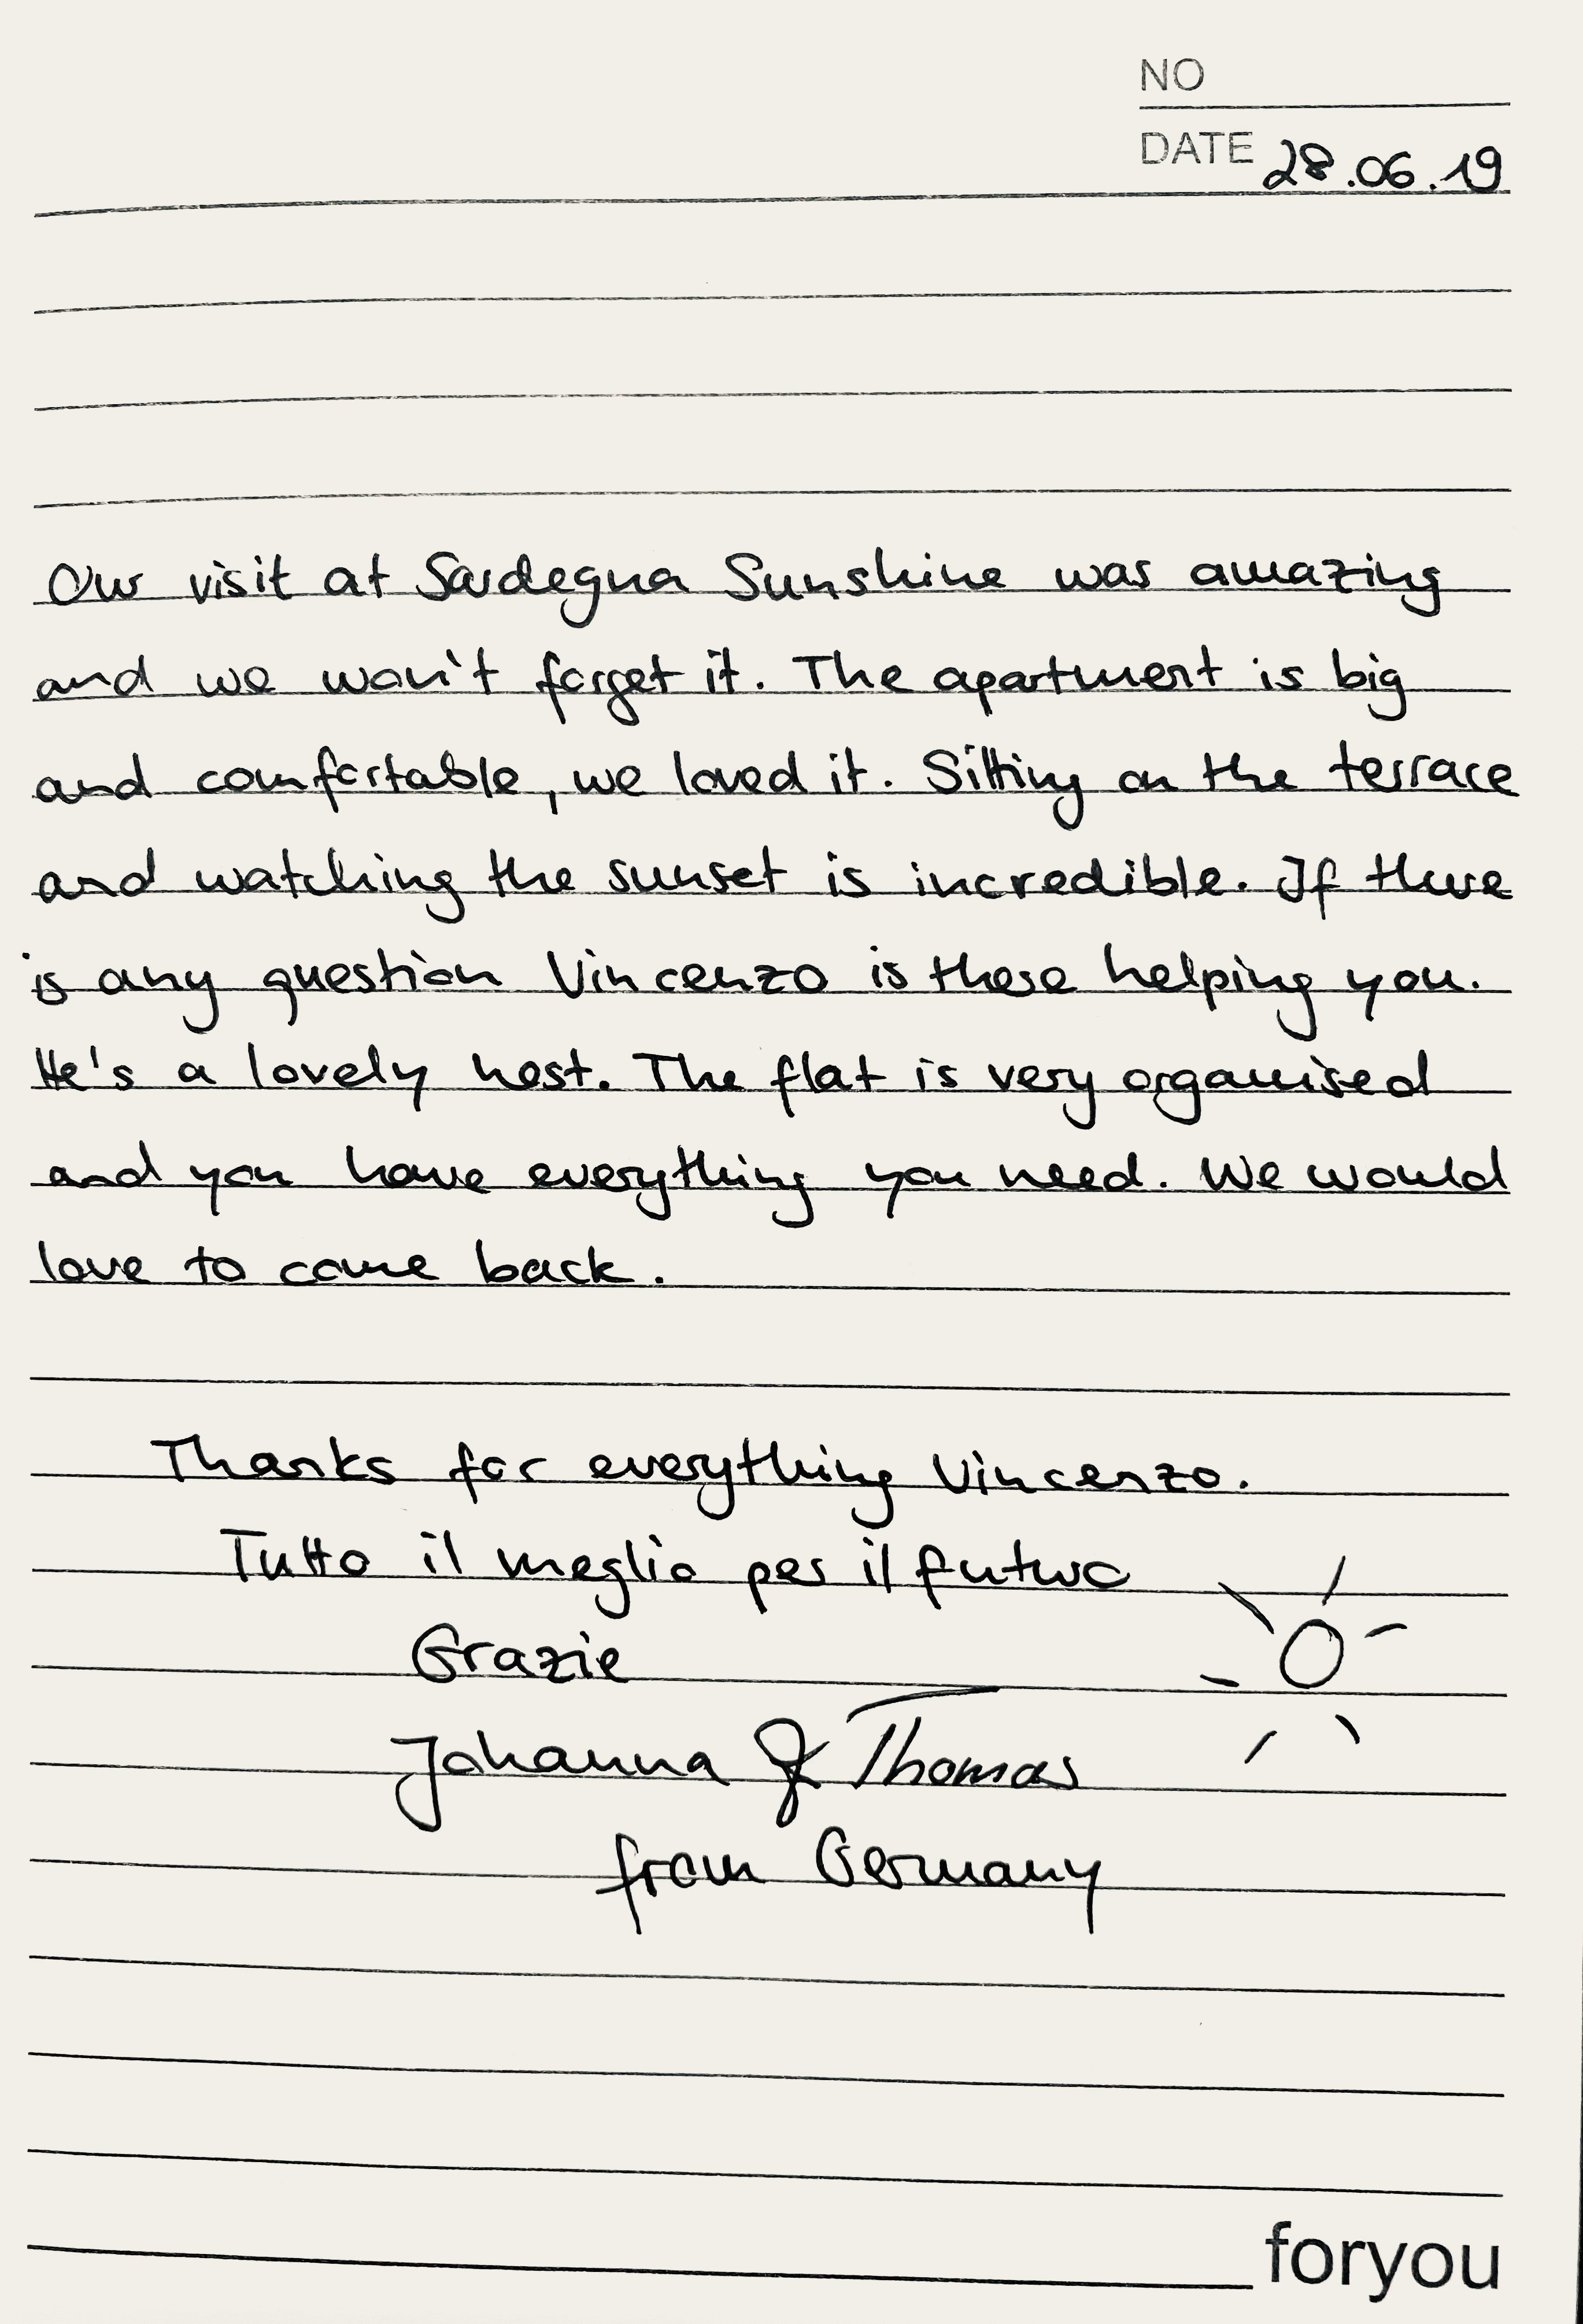 NO
DATE 28.06.19
Our visit at Sardegna Sunshine was amazing
and we won't forget it. The apartment is big
and comfortable, we loved it. Sitting on the terrace
and watching the sunset is incredible. If there
is any question Vincenzo is there helping you.
He's a lovely host. The flat is very organised
and you have everything you need. We would
love to come back.
Thanks for everything Vincenzo.
Tutto il meglio per il futuro
Grazie
Johanna & Thomas
from Germany
foryou